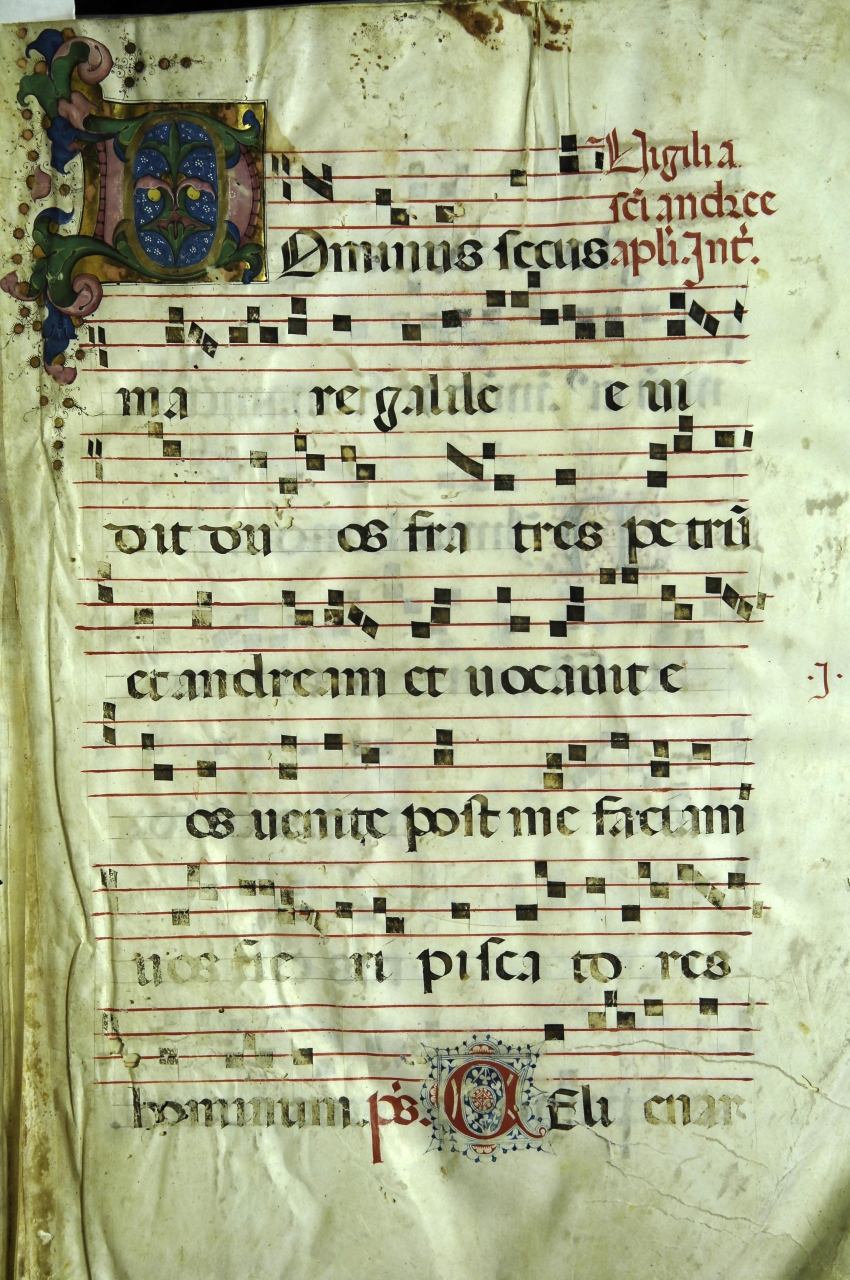 Vigilia
sci andree
Dominus secus apli. Int.
ma re galile e vi
dit du os fra tres petrū
et andream et uocauit e
.J.
os uenite post me faciam
uos fie ri pisca to res
hominum. ps. Celi enar